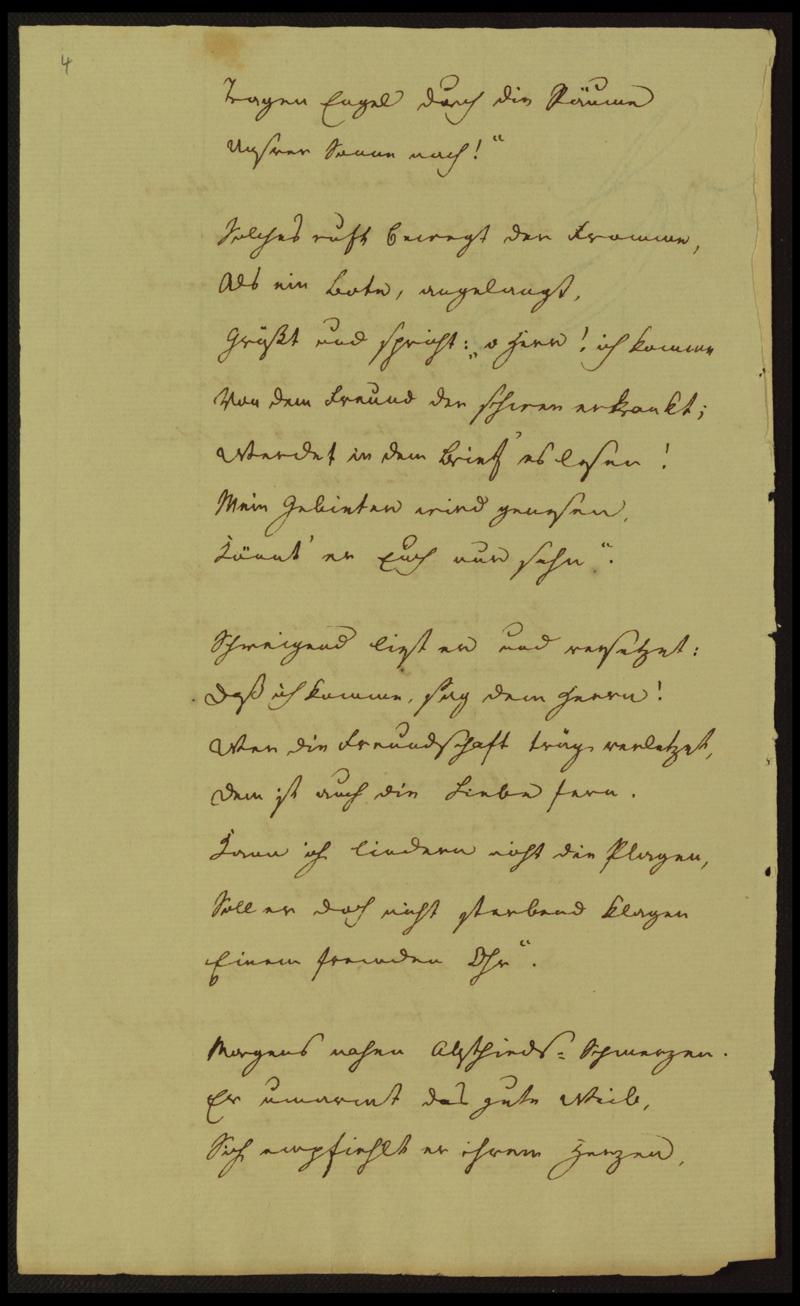 4
Tragen Engel durch die Räume
Unsrer Sonne nach!“
Solches ruft bewegt der Fromme,
Als ein Bote, angelangt,
Grüßt und spricht: „o Herr! ich komme
Von dem Freund der schwer erkrankt;
Werdet in dem Brief es lesen!
Mein Gebieter wird genesen,
Könnt' er Euch nur sehn“.
Schweigend liest er und versetzet:
Daß ich komme, sag dem Herrn!
Wer die Freundschaft träg verletzet,
Dem ist auch die Liebe fern.
Kann ich lindern nicht die Plagen,
Soll er doch nicht sterbend klagen
Einem fremden Ohr“.
Morgens nahen Abschieds-Schmerzen.
Er umarmt das gute Weib,
Sich empfiehlt er ihrem Herzen,